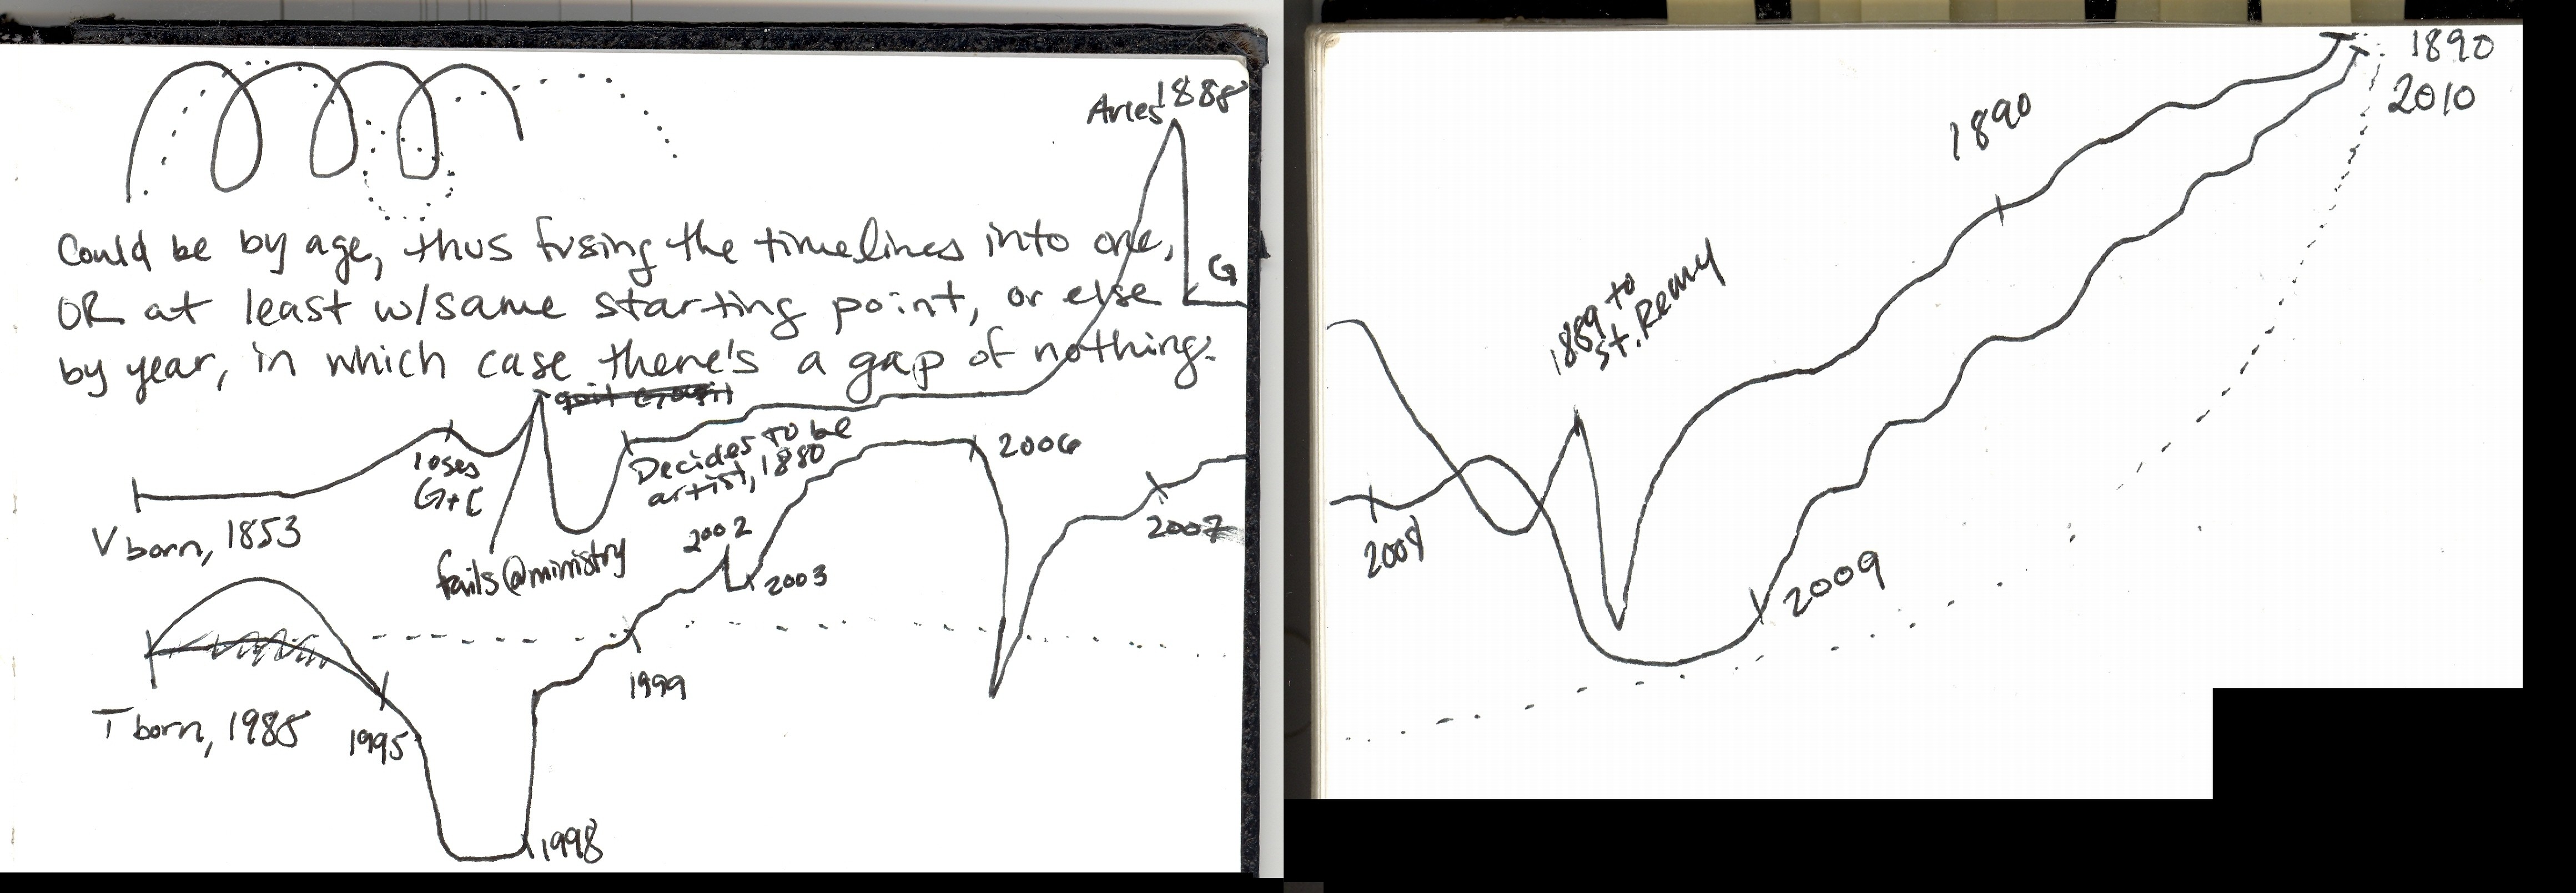 Arles 1888
Could be by age, thus fusing the timelines into one,
OR at least w/same starting point, or else
by year, in which case there's a gap of nothing.
G
loses
G+C
Decides to be
artist, 1880
V born, 1853
fails@ministry
2002
2003
2006
2007
T born, 1985
1995
1999
1998
1890
2010
1890
1889 to
St. Remy
2008
2009